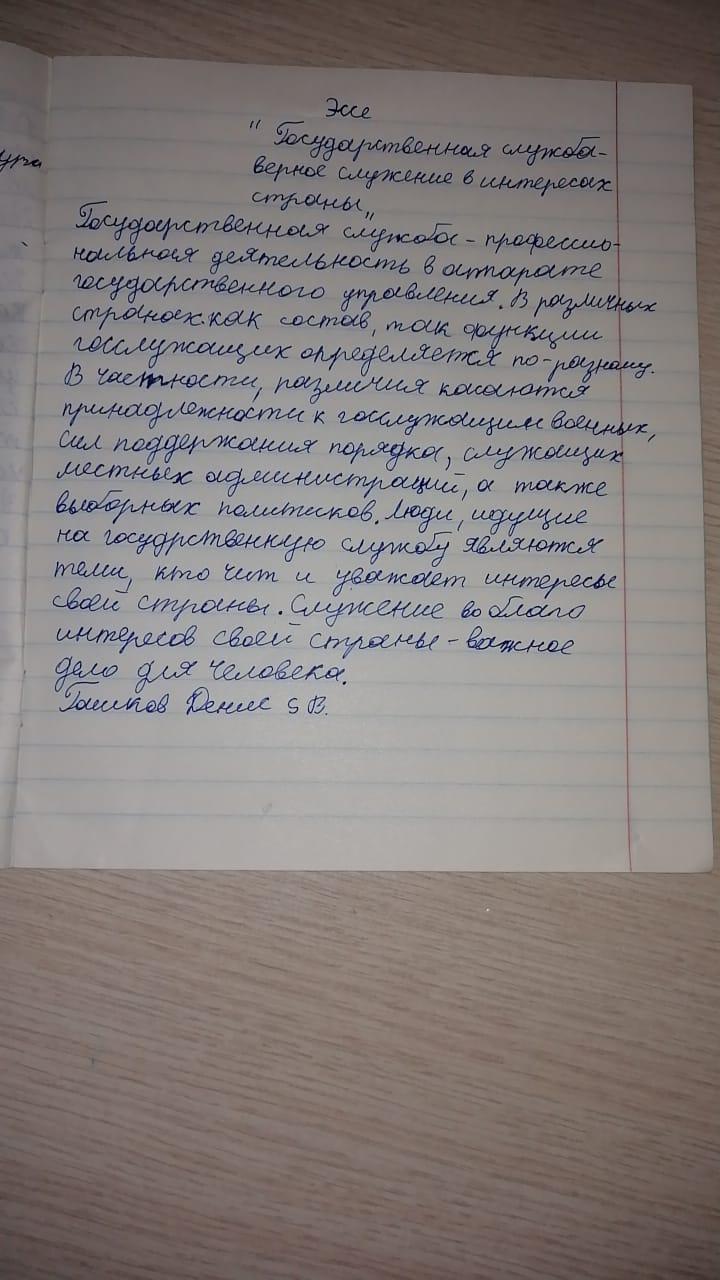 Эссе
"Государственная служба-
верное служение в интересах
страны„
Государственная служба - профессио-
нальная деятельность в аппарате
государственного управления. В различных
странах как состав, так функции
госслужащих определяется по-разному.
В частности, различия касаются
принадлежности к госслужащим военных,
сил поддержания порядка, служащих
местных администраций, а также
выборных политиков. Люди, идущие
на госудрственную службу являются
теми, кто чтит и уважает интересы
своей страны. Служение во благо
интересов своей страны - важное
дело для человека.
Гашков Денис 5 В.